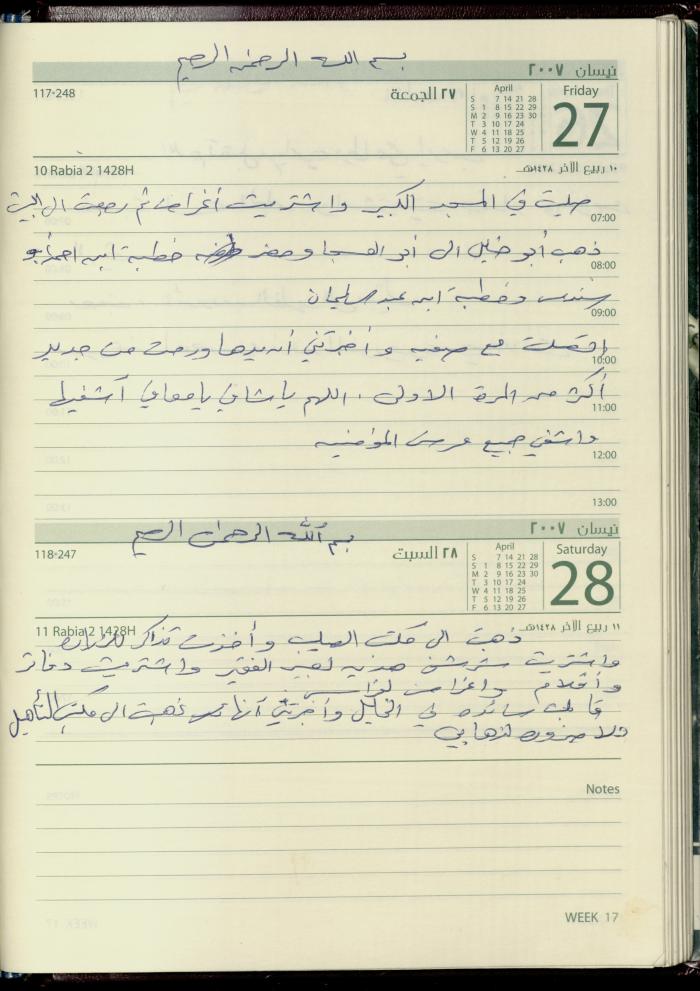 بسم الله الرحمن الرحيم
نيسان ٢٠٠٧
117-248
٢٧ الجمعة
April
S 7 14 21 28
S 1 8 15 22 29
M 2 9 16 23 30
T 3 10 17 24
W 4 11 18 25
T 5 12 19 26
F 6 13 20 27
Friday
27
10 Rabia 2 1428H
١٠ ربيع الآخر ١٤٢٨هـ
صليت في المسجد الكبير واشتريت أغراض ثم رجعت الى البيت
07:00
ذهب أبو خليل الى أبو وحضر خطبة ابن احمد أبو
08:00
سندس وخطبة ابن عبد سليمان
09:00
اتصلت مع صفيه وأخبرتني أن يدها ورمت من جديد
10:00
أكثر من المرة الاولى . اللهم يا شافي يا معافي أشفيها
11:00
واشفي جميع مرضى المؤمنين
12:00
13:00
نيسان ٢٠٠٧
بسم الله الرحمن الرحيم
118-247
٢٨ السبت
April
S 7 14 21 28
S 1 8 15 22 29
M 2 9 16 23 30
T 3 10 17 24
W 4 11 18 25
T 5 12 19 26
F 6 13 20 27
Saturday
28
11 Rabia 2 1428H
١١ ربيع الآخر ١٤٢٨هـ
ذهبت الى مكتب الصليب وأخذت تذاكر للزيارة
واشتريت لعبد الفقير واشتريت دفاتر
وأقلام واغراض
قابلت سائده في الخليل وأخبرتني أنها ذهبت الى مكتب التأهيل
ولا ضرورة لذهابي
Notes
WEEK 17